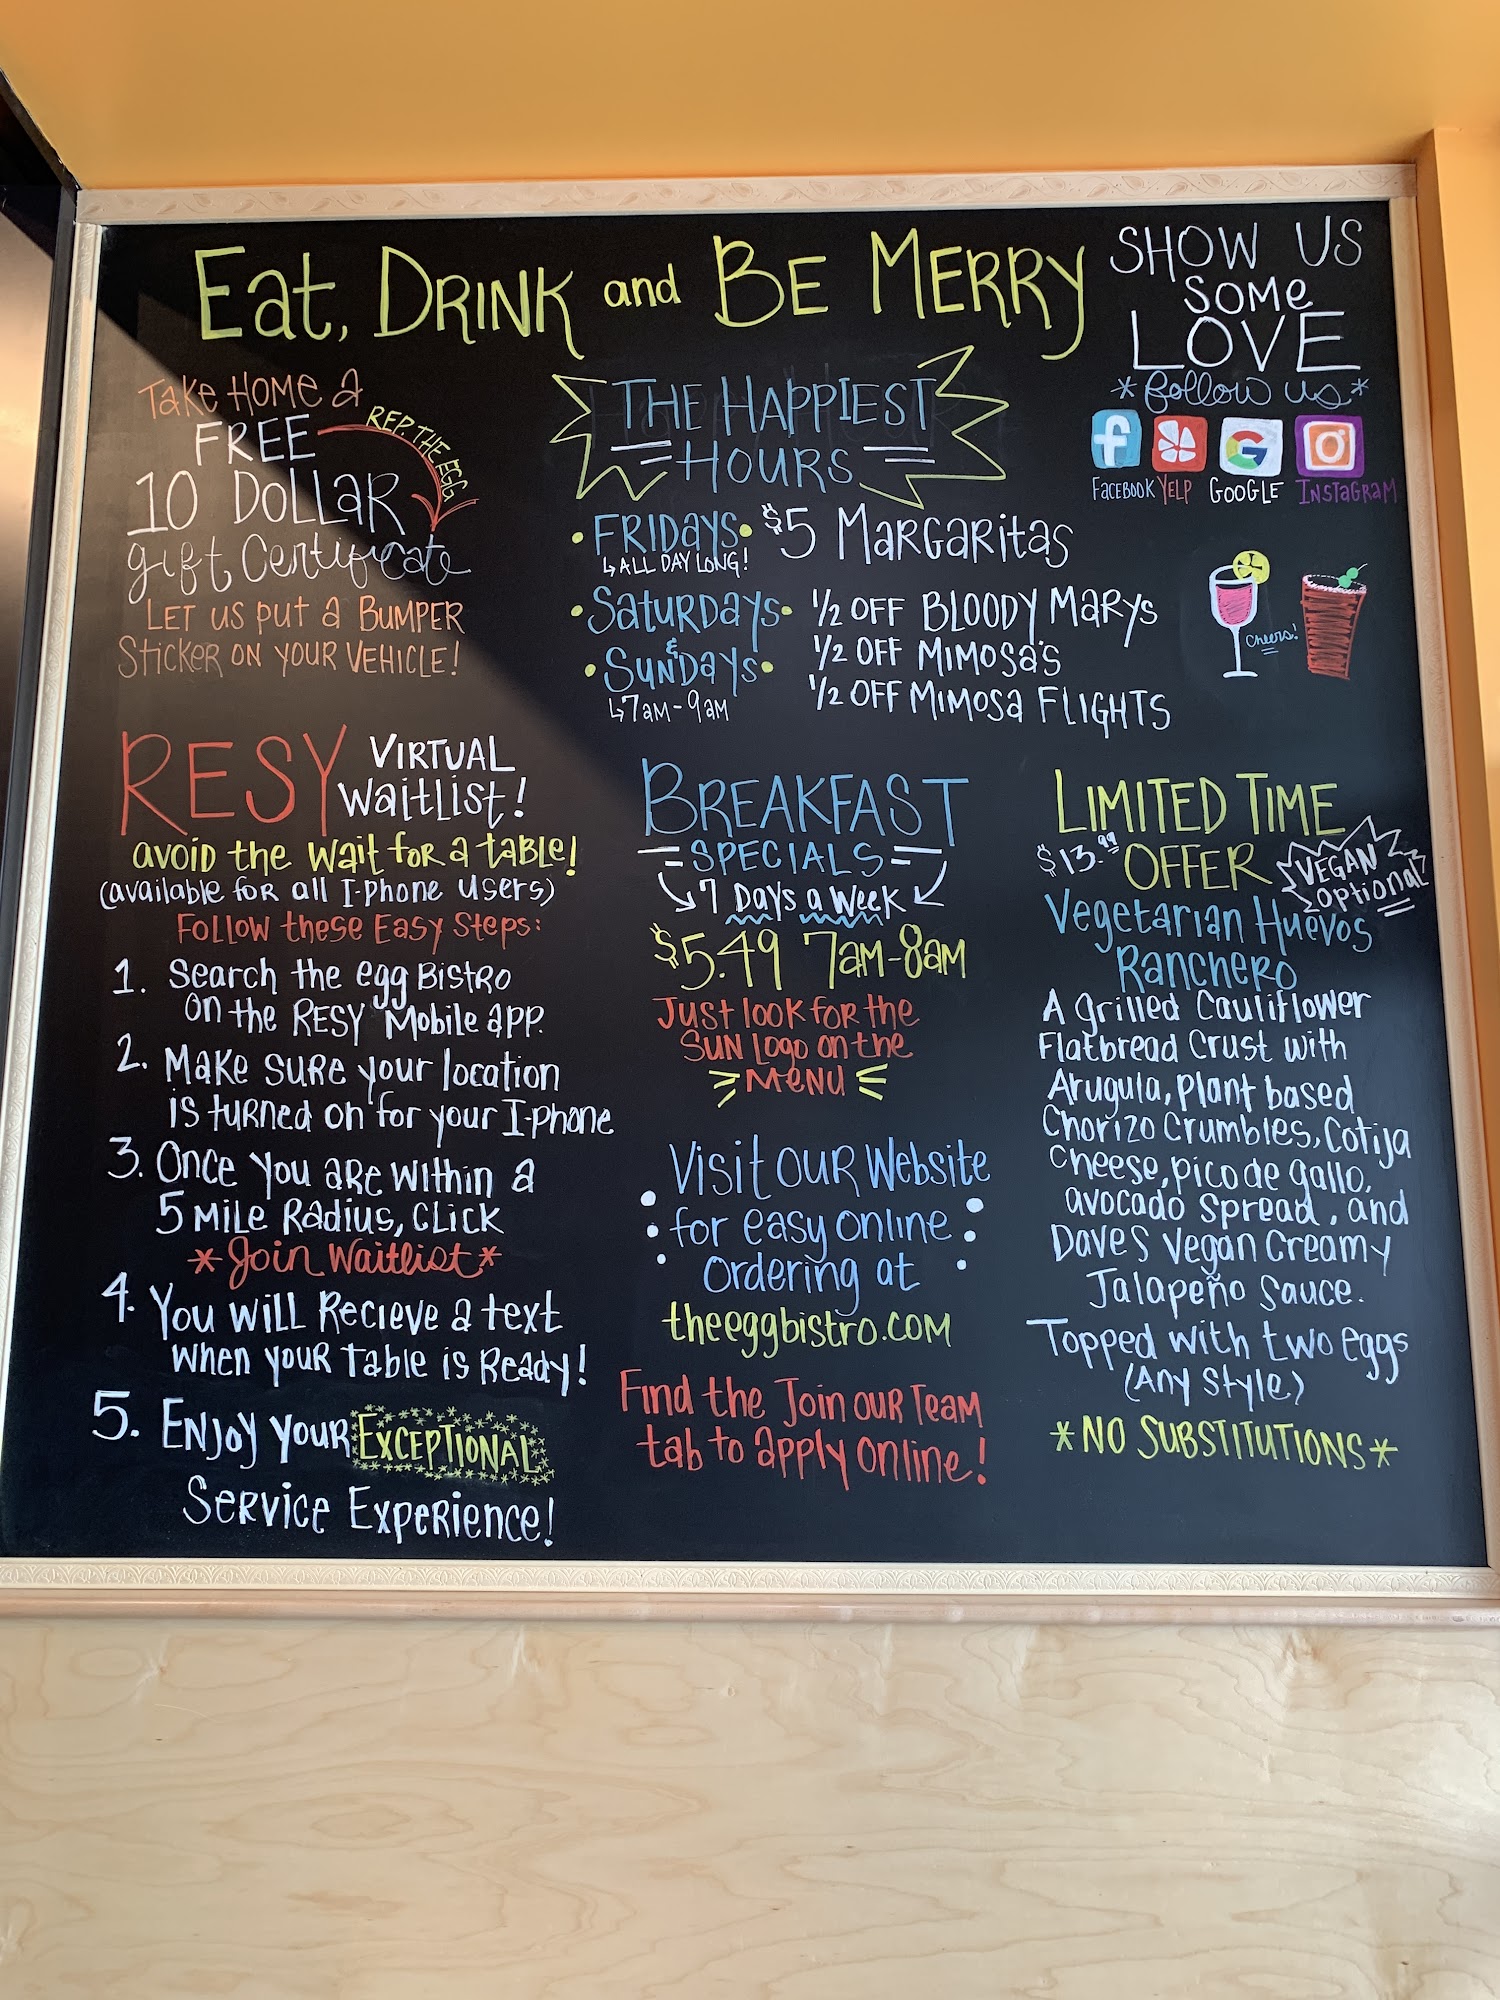 Eat, DRINK and BE MERRY
SHOW US
SOME
LOVE
*follow us*
FACEBOOK YELP GOOGLE INSTAGRAM
Take HOME a
FREE
REP. THE EGG
10 DOLLAR
gift Certificate
LET US put a BUMPER
STICKER ON YOUR VEHICLE!
THE HAPPIEST
HOURS
• FRIDAYS • $5 MARGARITAS
↳ ALL DAY LONG!
• SATURDAYS •
&
• SUNDAYS •
↳ 7am - 9am
1/2 OFF BLOODY MARYS
1/2 OFF MIMOSA'S
1/2 OFF MIMOSA FLIGHTS
cheers!
RESY VIRTUAL
WAITLIST!
avoid the wait for a table!
(available for all I-phone users)
Follow these Easy Steps:
1. Search the egg Bistro
on the RESY Mobile app.
2. Make sure your location
is turned on for your I-phone
3. Once you are within a
5 Mile Radius, click
*Join Waitlist*
4. You will Recieve a text
when your table is Ready!
5. Enjoy your EXCEPTIONAL
Service Experience!
BREAKFAST
SPECIALS
7 Days a Week
$5.49 7am-8am
Just look for the
Sun Logo on the
MENU
Visit our Website
for easy online
ordering at
theeggbistro.com
Find the Join our Team
tab to apply online!
LIMITED TIME
$13.99 OFFER
VEGAN
optional
Vegetarian Huevos
Ranchero
A grilled Cauliflower
Flatbread Crust with
Arugula, Plant based
Chorizo Crumbles, Cotija
Cheese, pico de gallo,
avocado spread, and
Daves Vegan Creamy
Jalapeño Sauce.
Topped with two eggs
(Any Style)
*NO SUBSTITUTIONS*